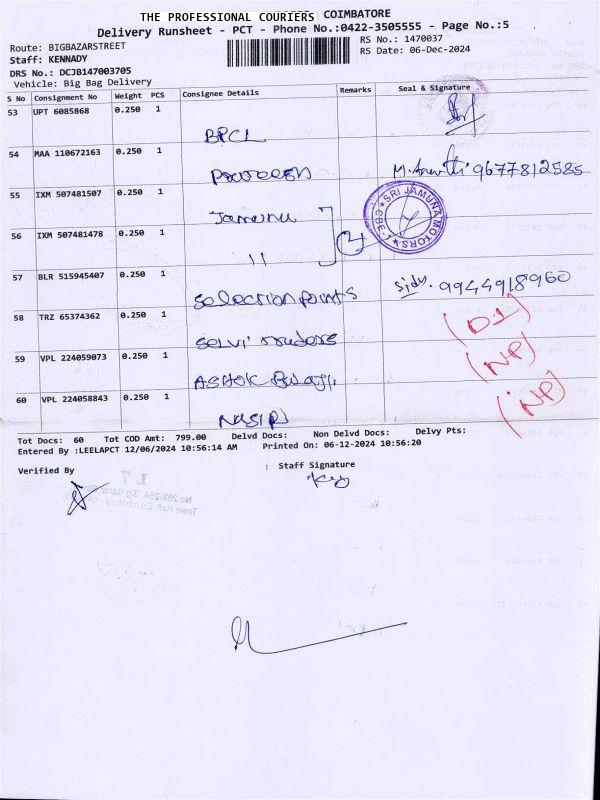 THE PROFESSIONAL COURIERS COIMBATORE
Delivery Runsheet - PCT - Phone No.:0422-3505555 - Page No.:5
Route: BIGBAZARSTREET
RS No.: 1470037
Staff: KENNADY
RS Date: 06-Dec-2024
DRS No.: DCJB147003705
Vehicle: Big Bag Delivery
S No Consignment No Weight PCS Consignee Details Remarks Seal & Signature
53 UPT 6085868 0.250 1
BPCL
54 MAA 110672163 0.250 1
9677812585
55 IXM 507481507 0.250 1
Jamuna
SRI JAMUNA MOTORS
CBE-1
56 IXM 507481478 0.250 1
"
57 BLR 515945407 0.250 1
selection points
9944918960
58 TRZ 65374362 0.250 1
selvi traders
(D1)
59 VPL 224059073 0.250 1
ASHOK Balaji
(NP)
60 VPL 224058843 0.250 1
(NP)
Tot Docs: 60 Tot COD Amt: 799.00 Delvd Docs: Non Delvd Docs: Delvy Pts:
Entered By :LEELAPCT 12/06/2024 10:56:14 AM Printed On: 06-12-2024 10:56:20
Verified By
Staff Signature